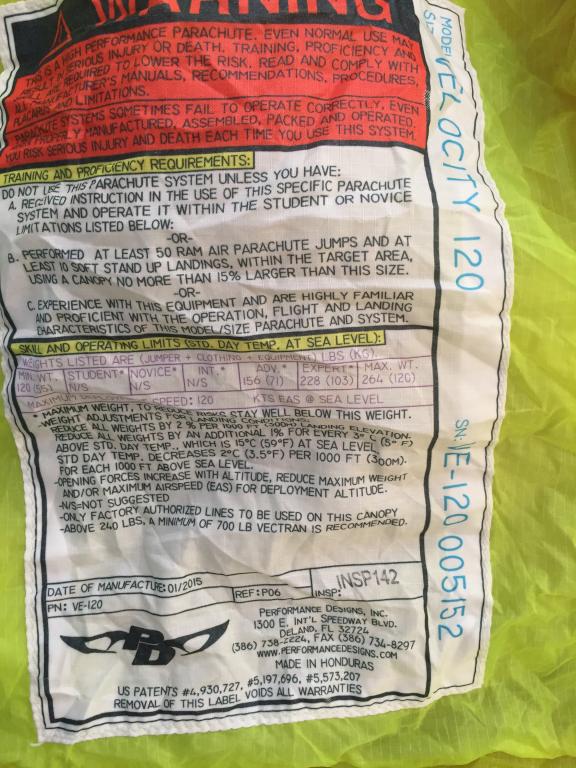 WARNING
THIS IS A HIGH PERFORMANCE PARACHUTE. EVEN NORMAL USE MAY
IN SERIOUS INJURY OR DEATH. TRAINING, PROFICIENCY AND
ARE REQUIRED TO LOWER THE RISK. READ AND COMPLY WITH
ALL MANUFACTURER'S MANUALS, RECOMMENDATIONS, PROCEDURES,
PLACARDS AND LIMITATIONS.
PARACHUTE SYSTEMS SOMETIMES FAIL TO OPERATE CORRECTLY, EVEN
PROPERLY MANUFACTURED, ASSEMBLED, PACKED AND OPERATED.
YOU RISK SERIOUS INJURY AND DEATH EACH TIME YOU USE THIS SYSTEM.
TRAINING AND PROFICIENCY REQUIREMENTS:
DO NOT USE THIS PARACHUTE SYSTEM UNLESS YOU HAVE:
A. RECEIVED INSTRUCTION IN THE USE OF THIS SPECIFIC PARACHUTE
SYSTEM AND OPERATE IT WITHIN THE STUDENT OR NOVICE
LIMITATIONS LISTED BELOW:
-OR-
B. PERFORMED AT LEAST 50 RAM AIR PARACHUTE JUMPS AND AT
LEAST 10 SOFT STAND UP LANDINGS, WITHIN THE TARGET AREA,
USING A CANOPY NO MORE THAN 15% LARGER THAN THIS SIZE.
-OR-
C. EXPERIENCE WITH THIS EQUIPMENT AND ARE HIGHLY FAMILIAR
AND PROFICIENT WITH THE OPERATION, FLIGHT AND LANDING
CHARACTERISTICS OF THIS MODEL/SIZE PARACHUTE AND SYSTEM.
SKILL AND OPERATING LIMITS (STD. DAY TEMP. AT SEA LEVEL):
WEIGHTS LISTED ARE (JUMPER + CLOTHING + EQUIPMENT) LBS (KG).
MIN. WT. STUDENT* NOVICE* INT.* ADV.* EXPERT* MAX. WT.
120 (55) N/S N/S N/S 156 (71) 228 (103) 264 (120)
MAXIMUM DEPLOYMENT SPEED: 120 KTS EAS @ SEA LEVEL
* MAXIMUM WEIGHT, TO REDUCE RISKS STAY WELL BELOW THIS WEIGHT.
-WEIGHT ADJUSTMENTS FOR LANDING CONDITIONS:
REDUCE ALL WEIGHTS BY 2 % PER 1000 FT (300M) LANDING ELEVATION.
REDUCE ALL WEIGHTS BY AN ADDITIONAL 1% FOR EVERY 3° C (5° F)
ABOVE STD. DAY TEMP., WHICH IS 15°C (59°F) AT SEA LEVEL
STD DAY TEMP. DECREASES 2°C (3.5°F) PER 1000 FT (300M).
FOR EACH 1000 FT ABOVE SEA LEVEL.
-OPENING FORCES INCREASE WITH ALTITUDE, REDUCE MAXIMUM WEIGHT
AND/OR MAXIMUM AIRSPEED (EAS) FOR DEPLOYMENT ALTITUDE.
-N/S=NOT SUGGESTED
-ONLY FACTORY AUTHORIZED LINES TO BE USED ON THIS CANOPY
-ABOVE 240 LBS, A MINIMUM OF 700 LB VECTRAN IS RECOMMENDED.
DATE OF MANUFACTURE: 01/2015 REF: P06 INSP: INSP142
PN: VE-120
PD
PERFORMANCE DESIGNS, INC.
1300 E. INT'L SPEEDWAY BLVD.
DELAND, FL 32724
(386) 738-2224, FAX (386) 734-8297
WWW.PERFORMANCEDESIGNS.COM
MADE IN HONDURAS
US PATENTS #4,930,727, #5,197,696, #5,573,207
REMOVAL OF THIS LABEL VOIDS ALL WARRANTIES
MODEL VELOCITY 120
SN: VE-120 005152